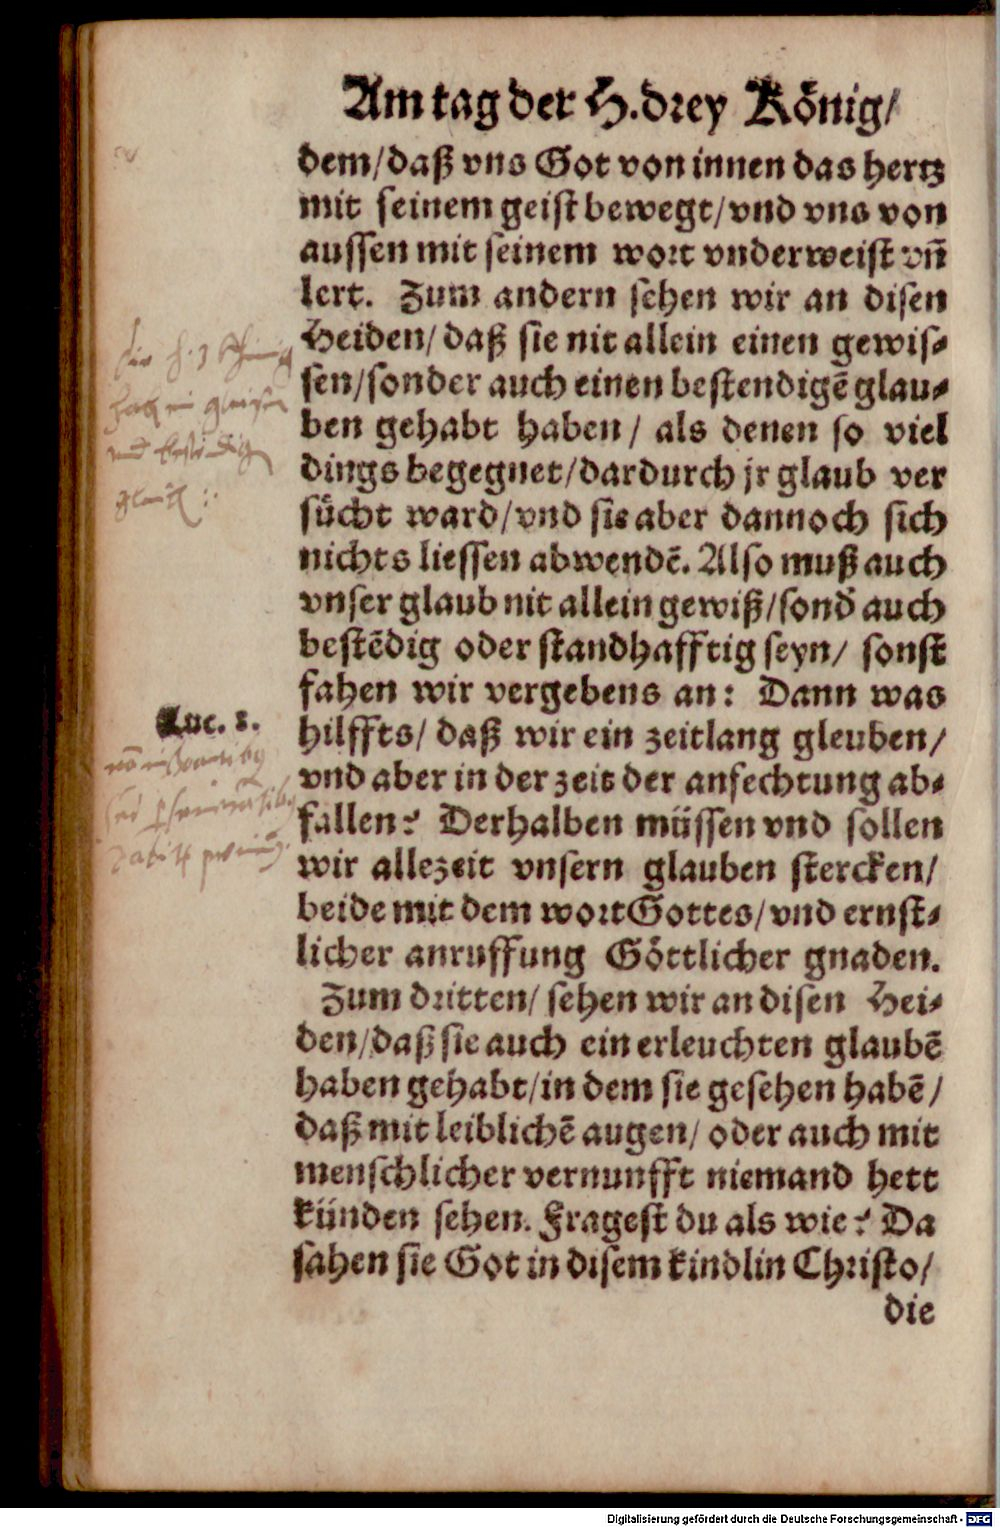 Am tag der H. drey König/
dem/daß vns Got von innen das hertz
mit seinem geist bewegt/vnd vns von
aussen mit seinem wort vnderweist vñ
lert. Zum andern sehen wir an disen
Heiden/daß sie nit allein einen gewis-
sen/sonder auch einen bestendigẽ glau-
ben gehabt haben/ als denen so viel
dings begegnet/dardurch jr glaub ver
sůcht ward/vnd sie aber dannoch sich
nichts liessen abwendẽ. Also muß auch
vnser glaub nit allein gewiß/sond̃ auch
bestẽdig oder standhafftig seyn/ sonst
fahen wir vergebens an: Dann was
Luc. 8.
hilffts/ daß wir ein zeitlang gleuben/
vnd aber in der zeit der anfechtung ab-
fallen? Derhalben müssen vnd sollen
wir allezeit vnsern glauben stercken/
beide mit dem wort Gottes/vnd ernst-
licher anruffung Göttlicher gnaden.
Zum dritten/ sehen wir an disen Hei-
den/daß sie auch ein erleuchten glaubẽ
haben gehabt/in dem sie gesehen habẽ/
daß mit leiblichẽ augen/ oder auch mit
menschlicher vernunfft niemand hett
künden sehen. Fragest du als wie? Da
sahen sie Got in disem kindlin Christo/
die
Digitalisierung gefördert durch die Deutsche Forschungsgemeinschaft - DFG